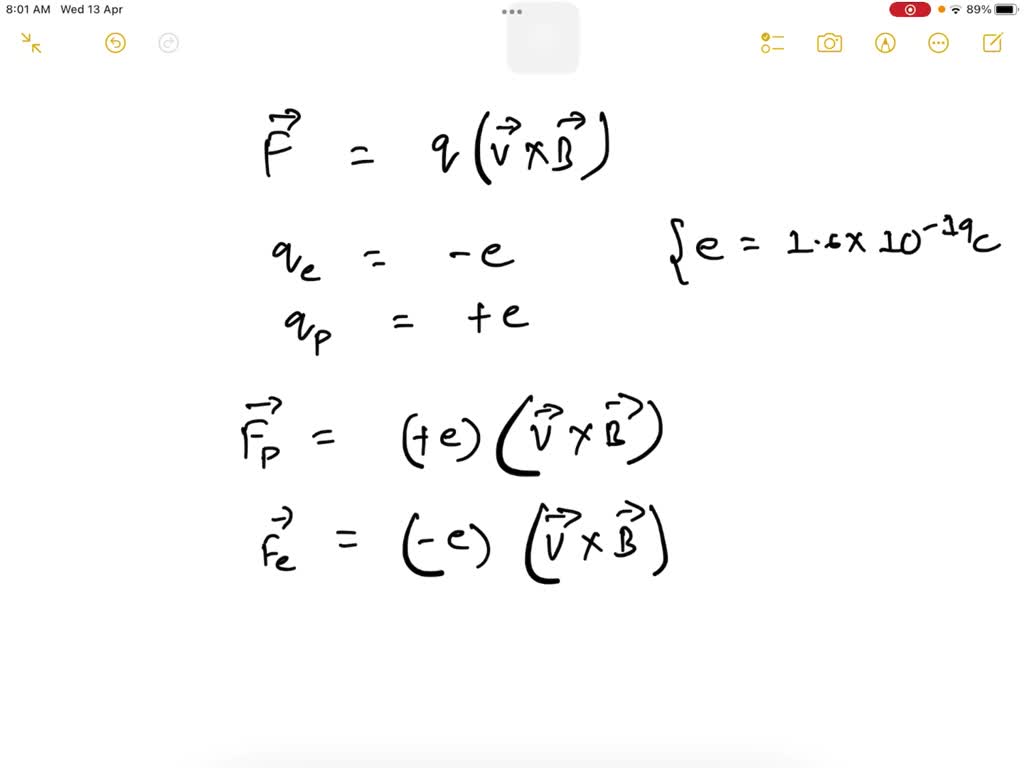 8:01 AM Wed 13 Apr 89%
F⃗ = q(v⃗ × B⃗)
qₑ = -e {e = 1.6 × 10⁻¹⁹C
qₚ = +e
F⃗ₚ = (+e) (v⃗ × B⃗)
F⃗ₑ = (-e) (v⃗ × B⃗)